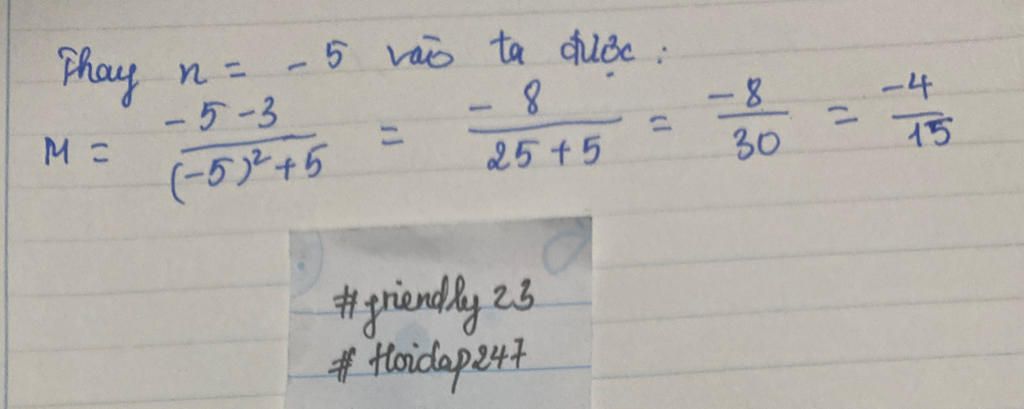 Thay n = - 5 vào ta được :
M = \frac{-5-3}{(-5)^2+5} = \frac{-8}{25+5} = \frac{-8}{30} = \frac{-4}{15}
#friendly23
#Hoidap247